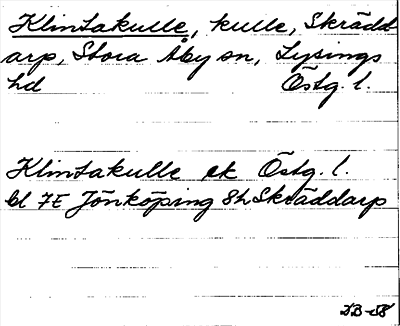 Klintakulle, kulle, Skrädd
arp, Stora Åby sn, Lysings
hd Östg. l.
Klintakulle ek Östg. l.
bl 7E Jönköping 8h Skräddarp
DB-58